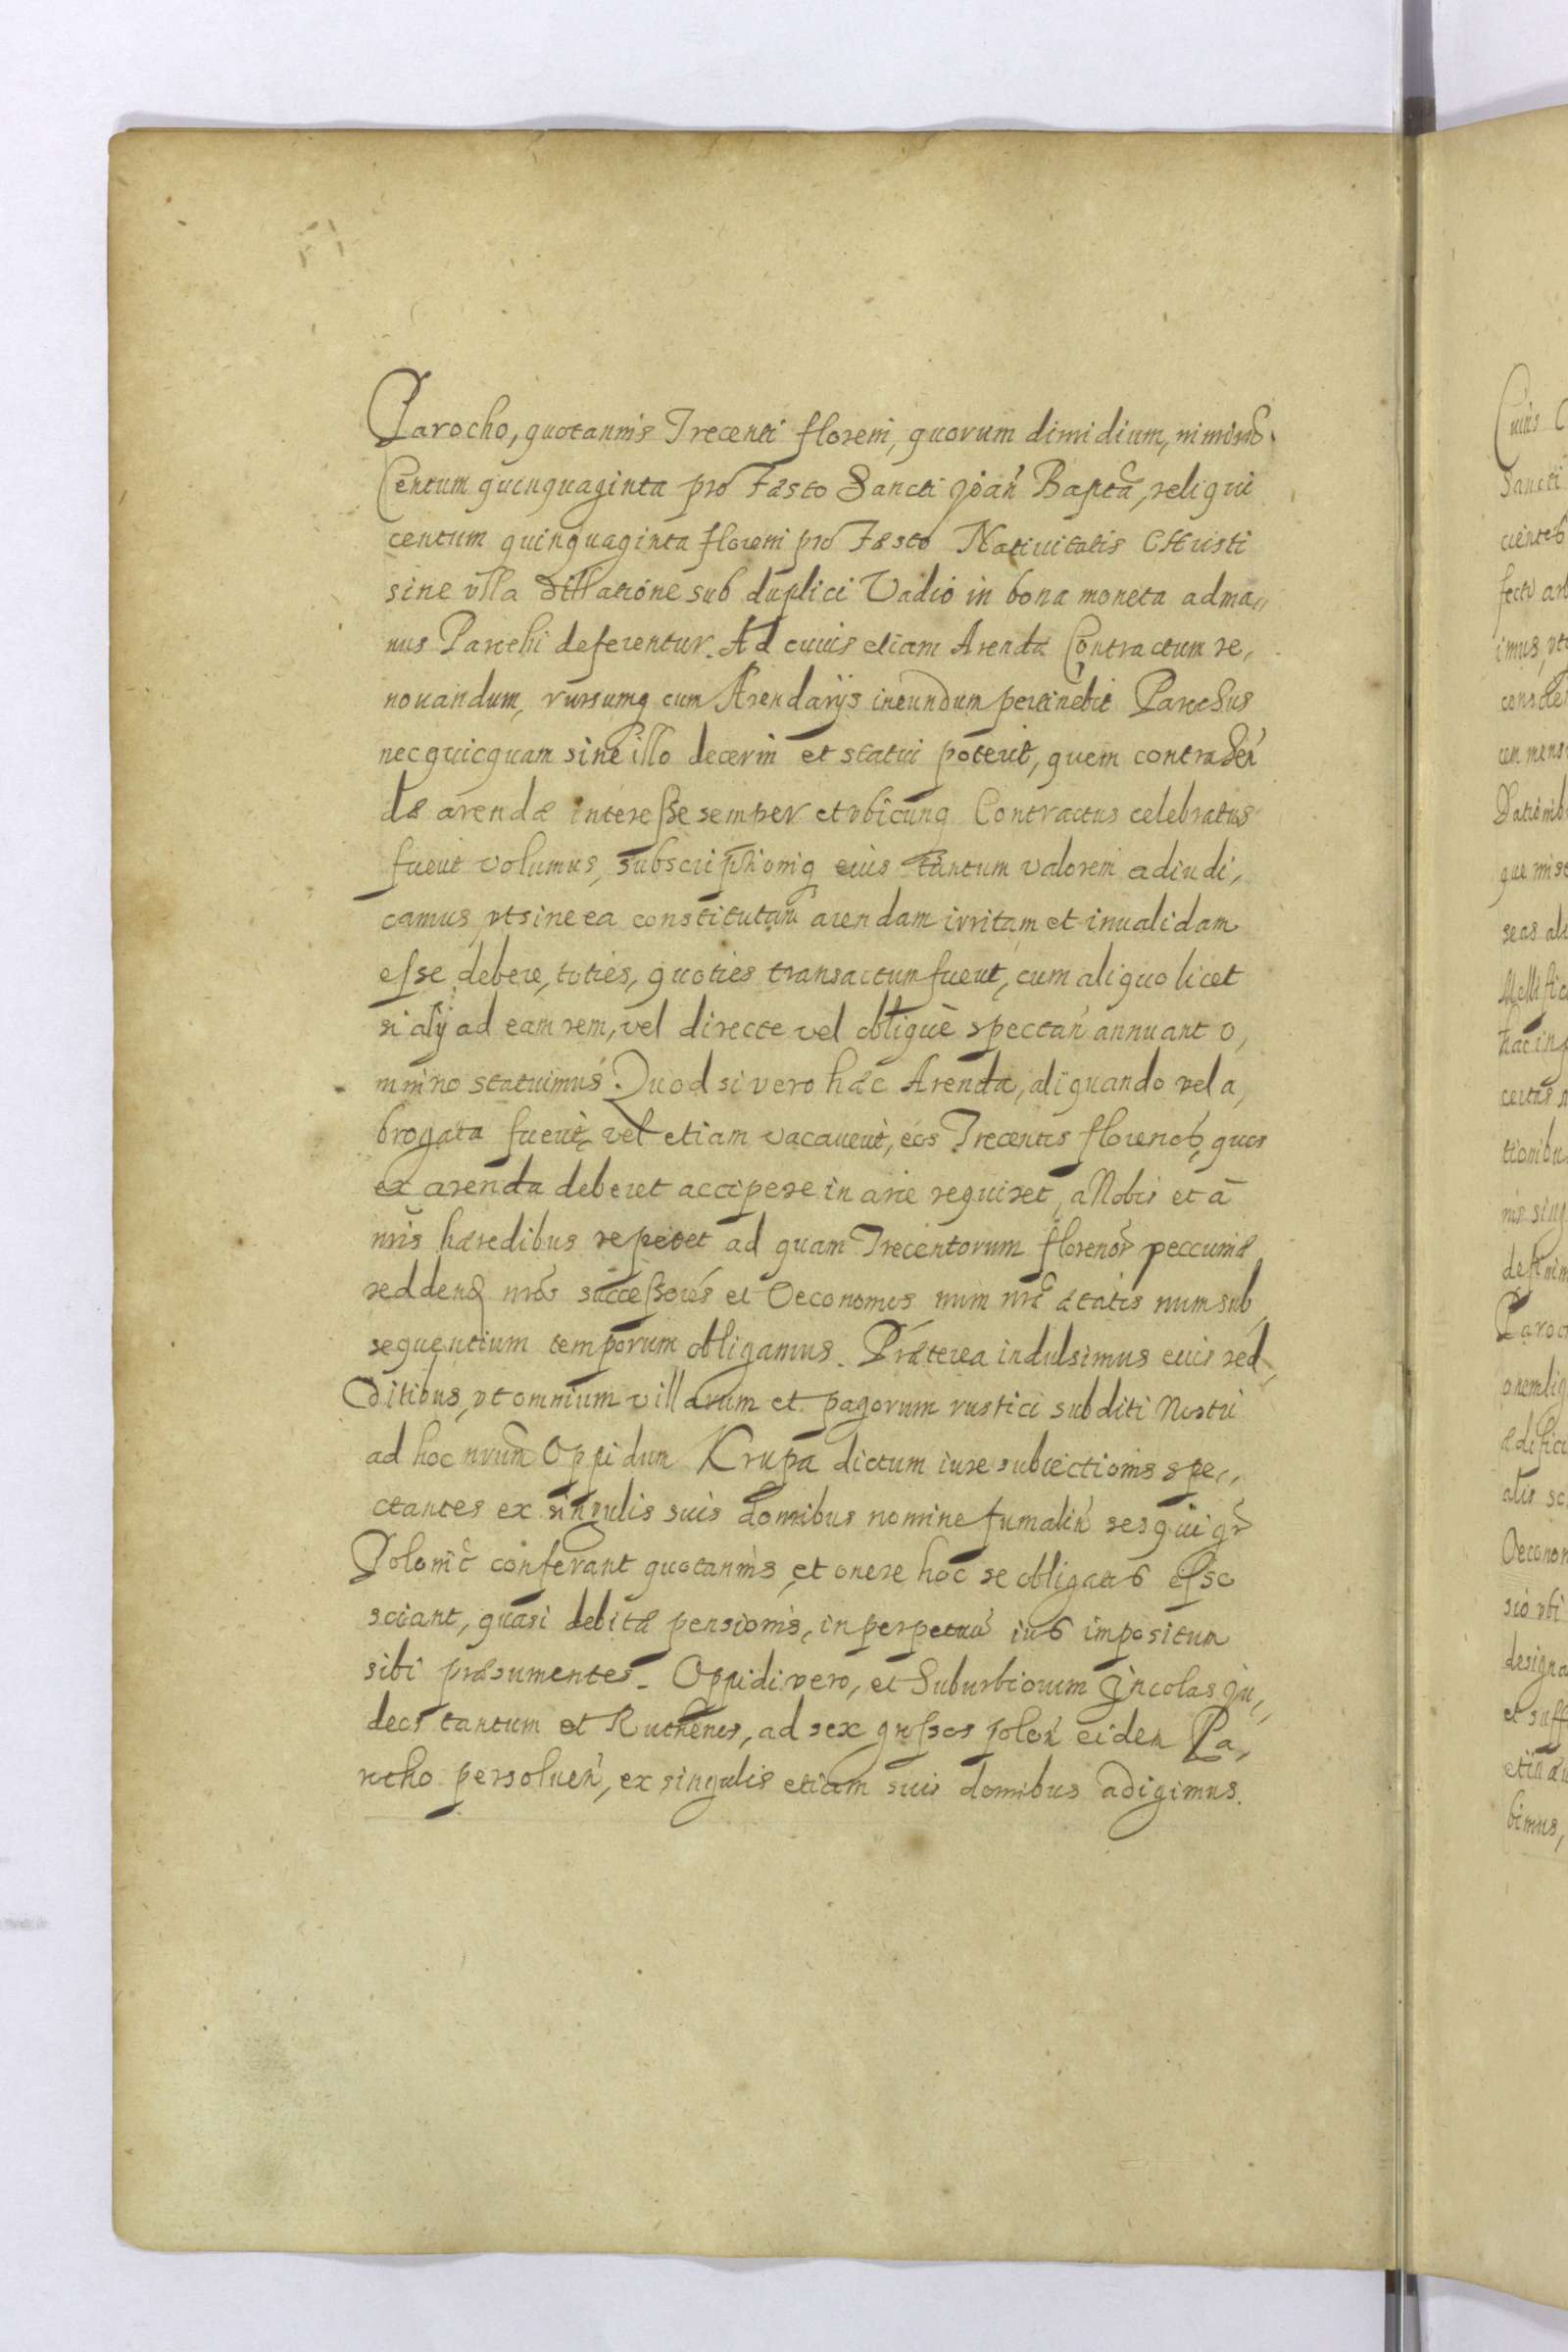 Parocho, quotannis Trecenti floreni, quorum dimidium, nimirũ
Centum quinquaginta pro Festo Sancti Joañ Baptã, reliqui
centum quinquaginta floreni pro Festo Natiuitatis CHristi
sine vlla dillatione sub duplici Vadio in bona moneta ad ma„
nus Parochi deferentur. Ad cuius etiam Arendæ Contractum re,
nouandum, rursumq cum Arendarijs ineundum pertinebit Parochus
nec quicquam sine illo decerni et statui poterit, quem contraheń
dæ arendæ interesse semper et vbicunq Contractus celebratus
fuerit volumus, subscriptioniq eius tantum valorem adiudi,
camus, vt sine ea constitutam arendam irritam et inualidam
esse debere, toties, quoties transactum fuerit, cum aliquo licet
si alij ad eam rem, vel directe vel obliquè spectań annuant o,
mnino statuimus. Quod si vero hæc Arenda, aliquando vel a,
brogata fuerit, vel etiam vacauerit, eos Trecentos florenos, quos
ex arenda deberet accipere in arce requiret, a Nobis et à
nr̃is hæredibus repetet ad quam Trecentorum florenor̃ peccuniæ
reddend nr̃os successores et Oeconomos nunc nr̃æ ætatis nunc sub,
sequentium temporum obligamus. Præterea indulsimus eius red,
ditibus, vt omnium villarum et pagorum rustici subditi Nostri
ad hoc nrum̃ Oppidum Krupa dictum iure subiectionis spe„
ctantes ex singulis suis domibus nomine fumaliń sesqui gr̃
Polonic̃ conferant quotannis, et onere hoc se obligatos esse
sciant, quasi debitæ pensionis, in perpetuũ ius impositum
sibi præsumentes. Oppidi vero, et Suburbiorum Jncolas Ju,
deos tantum et Ruthenos, ad sex grossos poloń eidem Pa,
rocho persolueń, ex singulis etiam suis domibus adigimus.